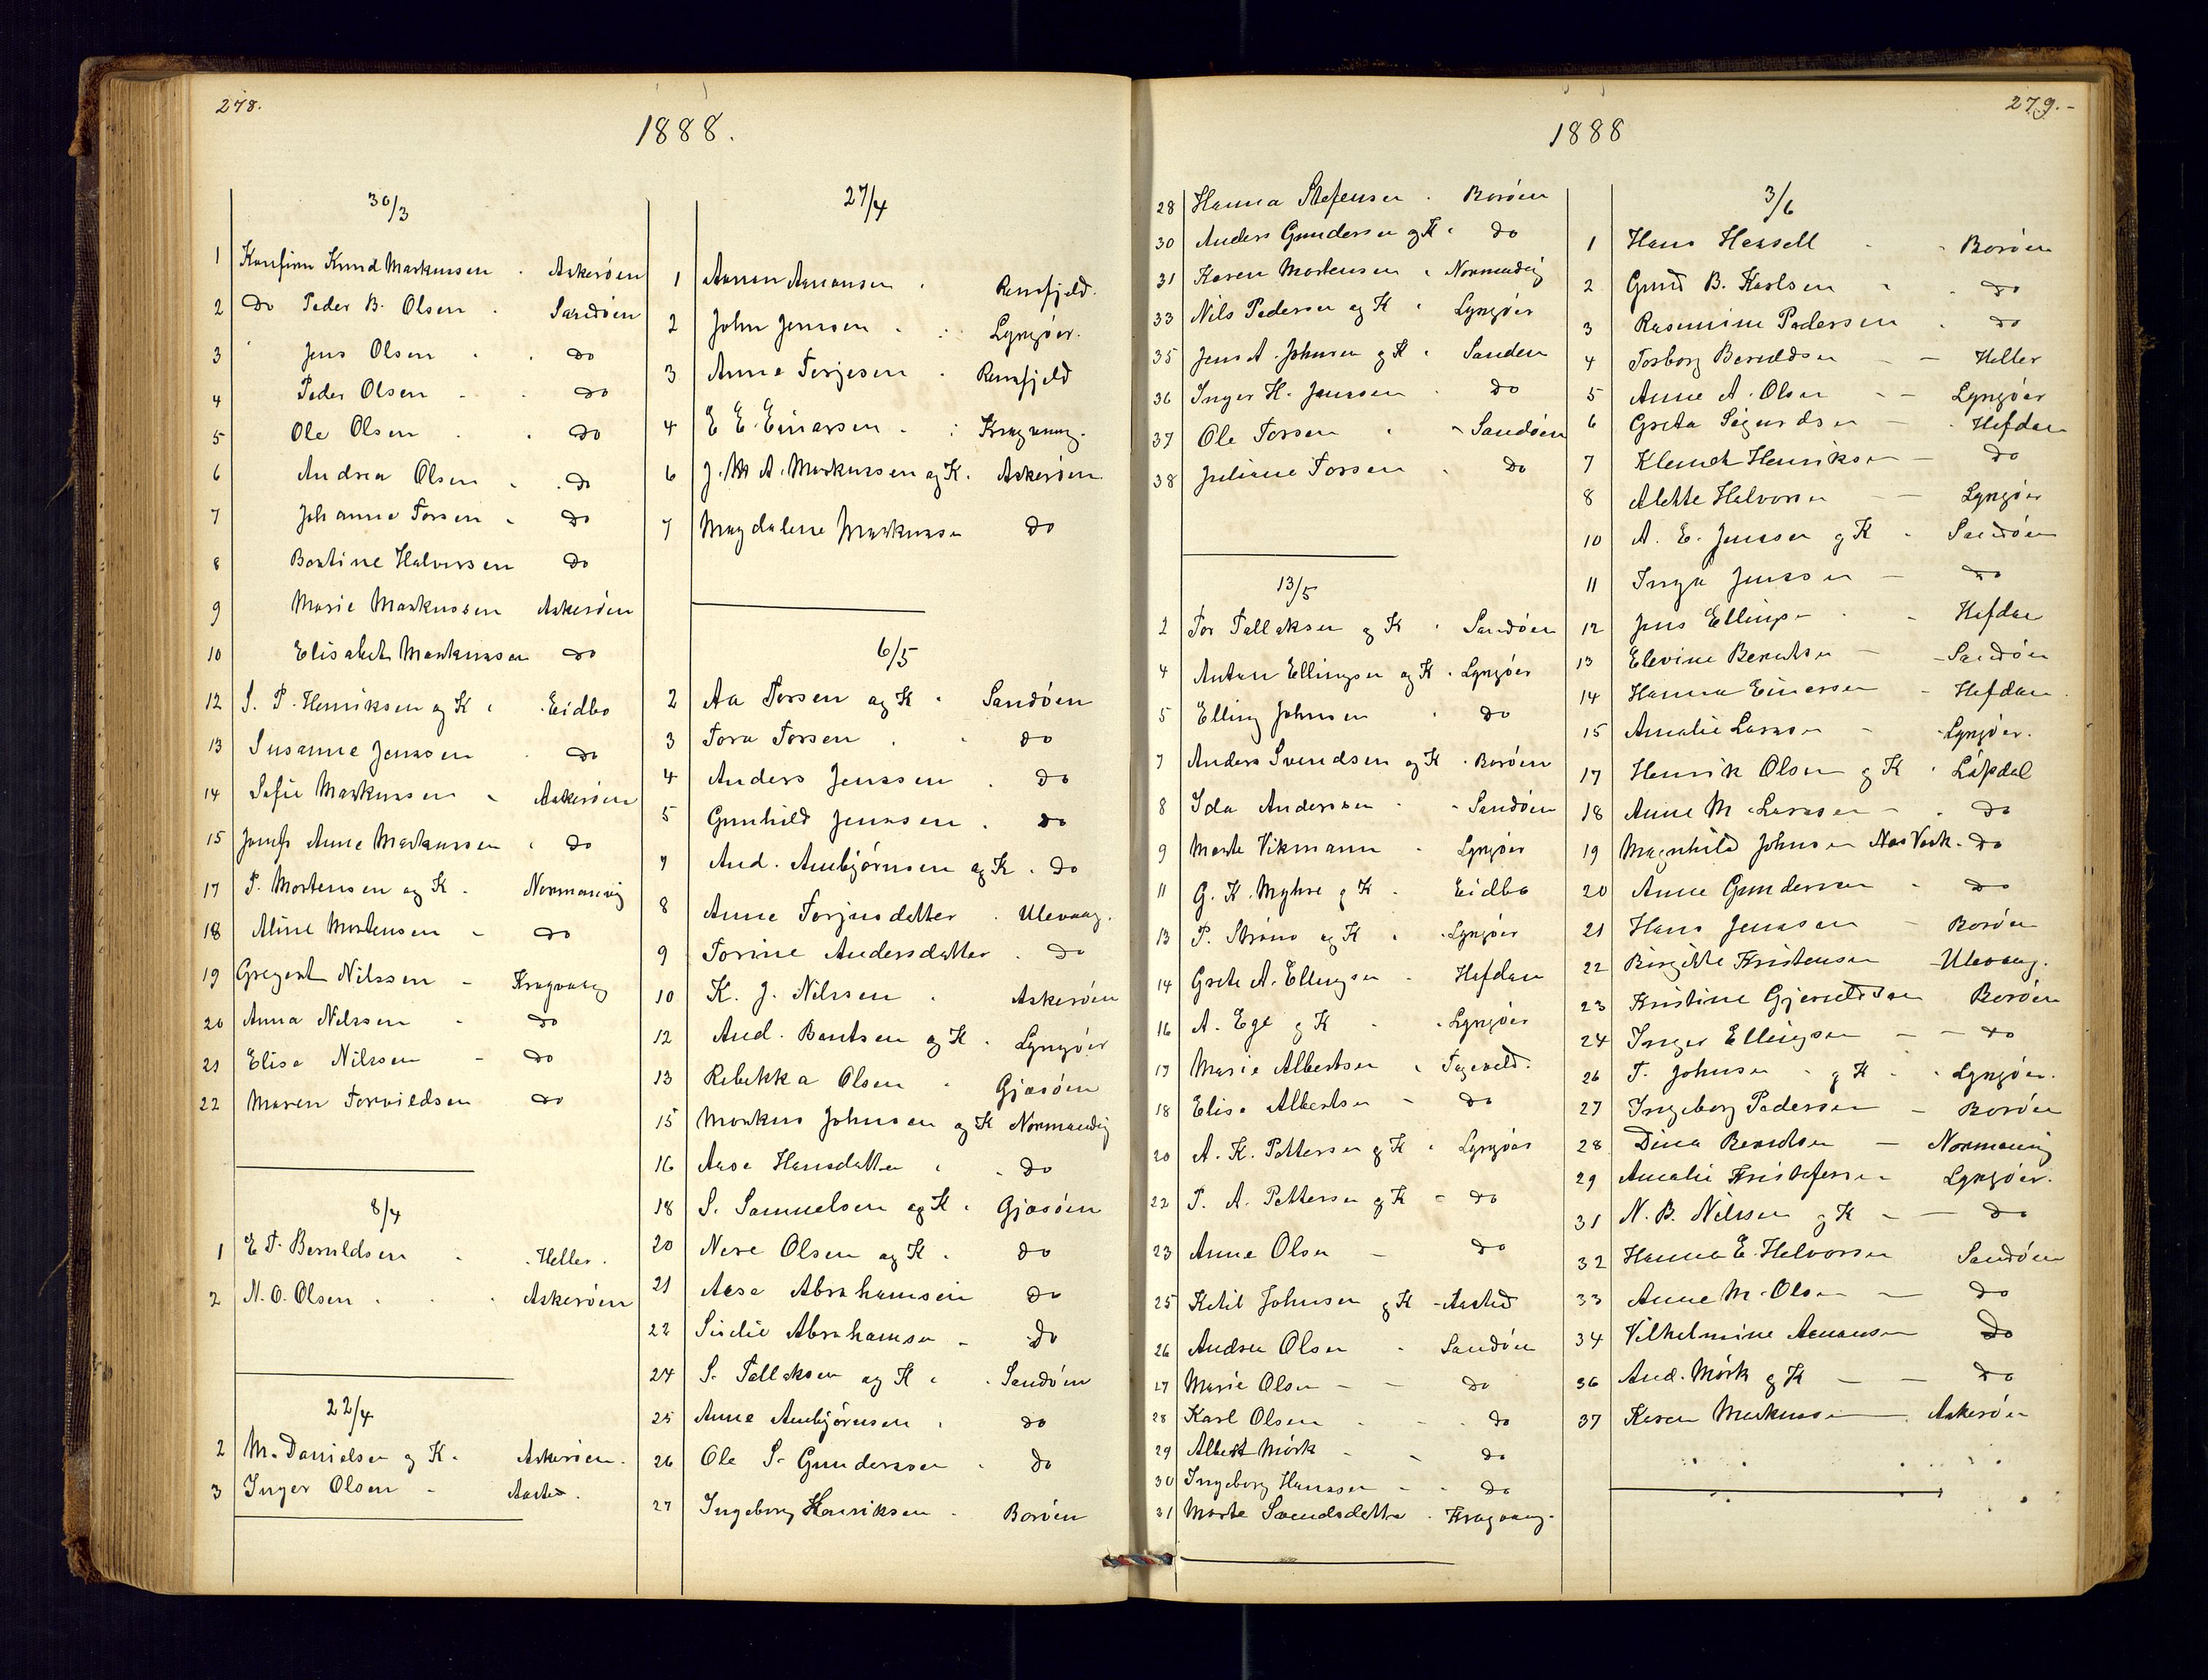 278.
1888.
30/3
1 Konfirm Knud Markussen . Askerøen
2 Do Peder B. Olsen . Sandøen
3 Jens Olsen . . do
4 Peder Olsen - . do
5 Ole Olsen . . do
6 Andrea Olsen . . do
7 Johanne Torsen . do
8 Bentine Halvorsen do
9 Marie Markussen Askerøen
10 Elisabeth Markussen do
12 S. P. Henriksen og K . Eidbo
13 Susanne Jenssen . do
14 Sofie Markussen - Askerøen
15 Jomfr Anne Markussen . do
17 P. Mortensen og K . Normanvig
18 Aline Mortensen - do
19 Gregert Nilssen - Kragvaag
20 Anna Nilssen - do
21 Elise Nilssen - do
22 Maren Torvildsen do
8/4
1 E T. Beruldsen - . Heller.
2 N. O. Olsen . . . Askerøen
22/4
2 M. Danielsen og K. Askerøen.
3 Inger Olsen - Aasted.
27/4
1 Aanon Aanonsen . Ramfjeld.
2 John Jenssen . . Lyngøer.
3 Anne Terjesen . Ramfjeld
4 E E. Einersen . . Kragvaag.
6 J. M A. Markussen og K. Askerøen
7 Magdalene Markussen do
6/5
2 Aa Torsen og K . Sandøen
3 Tora Torsen . . do
4 Anders Jenssen . do
5 Gunhild Jenssen . do
7 And. Anbjørnsen og K . do
8 Anne Terjesdatter . Ulevaag.
9 Torine Andersdatter . do
10 K. J. Nilssen . Askerøen
12 And. Bentsen og K . Lyngøer
13 Rebekka Olsen . Gjæsøen
15 Markus Johnsen og K Normandvig
16 Aase Hansdatter . . do
18 S. Samuelsen og K . Gjæsøen
20 Nere Olsen og K . do
21 Aase Abrahamsen do
22 Siedie Abrahamsen - do
24 S. Tallaksen og K . . Sandøen
25 Anne Anbjørnsen . do
26 Ole S. Gunderssen . do
27 Ingeborg Henriksen . Borøen
279.-
1888
28 Hanna Stefensen . Borøen
30 Anders Gundersen og K . do
31 Karen Mortensen . Normandvig
33 Nils Pedersen og K . Lyngøer
35 Jens A. Johnsen og K . Sanden
36 Inger H. Jenssen . do
37 Ole Torsen . - Sandøen
38 Juliane Torsen . do
13/5
2 Tor Tallaksen og K . Sandøen
4 Anton Ellingsen og K . Lyngøer
5 Elling Johnsen . do
7 Anders Svendsen og K . Borøen
8 Ida Anderssen . - Sandøen
9 Marte Vikmann . Lyngøer
11 G. K. Myhre og K . Eidbo
13 P. Strøno og K . . Lyngøer
14 Grete A. Ellingsen . Hefdan
16 A. Ege og K . . Lyngøer
17 Marie Albertsen . Fageveld.
18 Elise Albertsen - do
20 A. K. Pettersen og K . Lyngøer
22 P. A. Pettersen og K - do
23 Anne Olsen - do
25 Ketil Johnsen og K - Aasted
26 Andrea Olsen . Sandøen
27 Marie Olsen - - do
28 Karl Olsen . . . do
29 Albert Mørk - - do
30 Ingeborg Hanssen . . do
31 Marte Svendsdatter . Kragvaag.
3/6
1 Hans Hassell . . Borøen
2 Gurid B. Karlsen . . do
3 Rasmine Pedersen . do
4 Torborg Beruldsen - - Heller
5 Anne A. Olsen - - Lyngøer
6 Grete Sigurdsen - . Hefdan
7 Klemet Henriksen - do
8 Alette Halvorsen - - Lyngøer
10 A. E. Jenssen og K . Sandøen
11 Inga Jenssen - do
12 Jens Ellingsen . . Hefdan
13 Elevine Berntsen - - Sandøen
14 Hanna Einersen - Hefdan.
15 Amalie Larssen - - Lyngøer.
17 Henrik Olsen og K . Løvdal
18 Anne M. Larssen - . do
19 Magnhild Johnsen Næs Værk . do
20 Anne Gunderssen . do
21 Hans Jenssen - Borøen
22 Birgitte Kristensen - Ulevaag.
23 Kristine Gjeruldsen Borøen
24 Inger Ellingsen - - do
26 T. Johnsen . og K . . Lyngøer.
27 Ingeborg Pedersen - Borøen
28 Dina Berntsen - Normanvig
29 Amalie Kristofersen Lyngøer.
31 N. B. Nilssen og K - - do
32 Hanna E. Halvorsen Sandøen
33 Anne M. Olsen - do
34 Vilhelmine Aanonsen do
36 And. Mørk og K - - do
37 Karen Markussen - . Askerøen